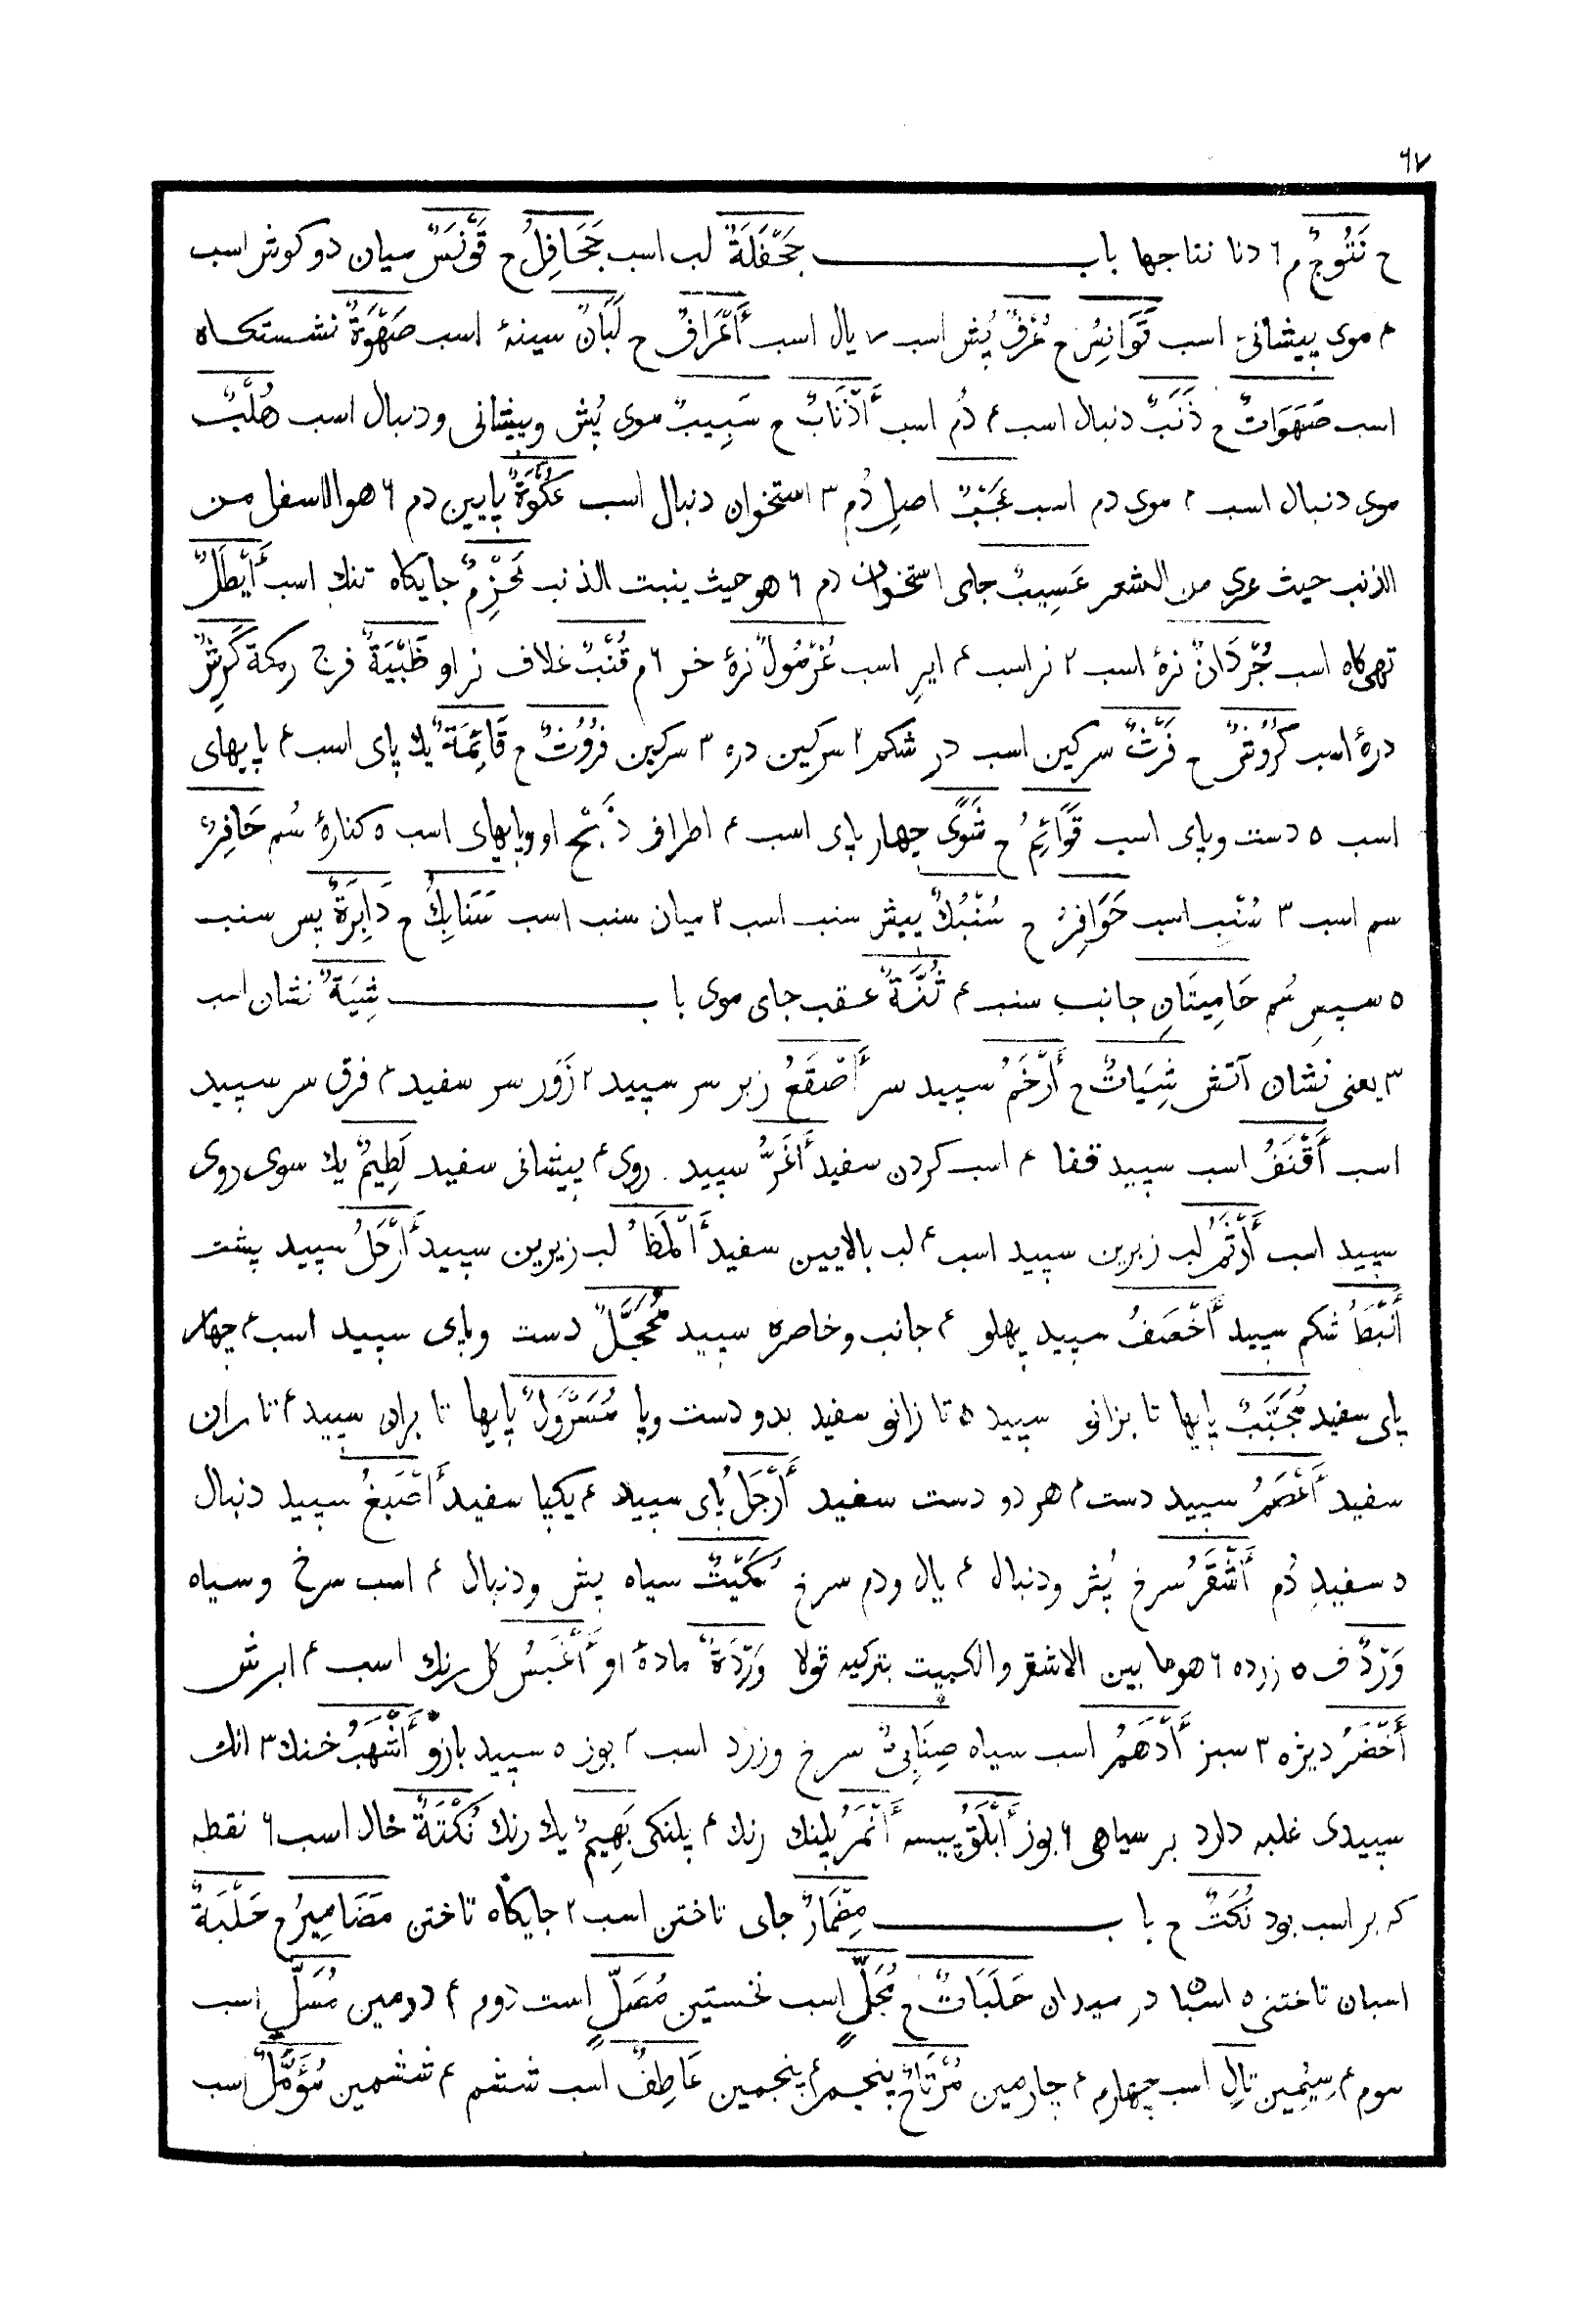 ٦٧
ح نَتُوجٌ م ٦ دنا نتاجها باب جَحْفَلَةٌ لب اسب جَحَافِلُ ح قَوْنَسٌ میان دو کوش اسب
۴ موی پیشانیء اسب قَوَانِسُ ح عُرْفٌ پُش اسب ٧ یال اسب أَعْرَافٌ ح لَبَانٌ سینهٔ اسب صَهْوَةٌ نشستکاه
اسب صَهَوَاتٌ ح ذَنَبٌ دنبال اسب ۴ دُم اسب أَذْنَابٌ ح سَبِيبٌ موی پُش وپیشانی ودنبال اسب هُلْبٌ
موی دنبال اسب ۴ موی دم اسب عَجْبٌ اصلِ دُم ٣ استخوان دنبال اسب عُكْوَةٌ پایین دم ٦ هو الاسفل من
الذنب حیث عری من الشعر عَسِيبٌ جای استخوان دم ٦ هو حیث ینبت الذنب مَحْزِمٌ جایکاه تنك اسب أَيْطَلٌ
تهی کاه اسب جُرْدَانٌ نرهٔ اسب ٢ نر اسب ۴ ایرِ اسب غُرْمُولٌ نرهٔ خر ٦ م قُنْبٌ غلاف نر او ظَبْيَةٌ فرج رمکة كَرِشٌ
درهٔ اسب كُرُوشٌ ح فَرْثٌ سرکین اسب در شکم ٢ سرکین دره ٣ سرکین فُرُوثٌ ح قَائِمَةٌ یك پای اسب ۴ پایهای
اسب ۵ دست وپای اسب قَوَائِمُ ح شَوًى چهار پای اسب ۴ اطراف ذَبْح او وپایهای اسب ۵ کنارهٔ سُم حَافِرٌ
سم اسب ٣ سُنْبِ اسب حَوَافِرُ ح سُنْبُكٌ پیش سنب اسب ٢ میان سنب اسب سَنَابِكُ ح دَابِرَةٌ پس سنب
۵ سپسِ سُم حَامِيتَانِ جانب سنب ۴ ثُنَّةٌ عقب جای موی باب شِيَةٌ نشان اسب
٣ یعنی نشان آتش شِيَاتٌ ح أَرْخَمُ سپید سر أَصْقَعُ زبر سر سپید ٢ زَوَر سر سفید ۴ فرق سر سپید
اسب أَقْنَفُ اسب سپید قفا ۴ اسب کردن سفید أَغَرُّ سپید روی ۴ پیشانی سفید لَطِيمٌ یك سوی روی
سپید اسب أَرْثَمُ لب زبرین سپید اسب ۴ لب بالایین سفید أَلْمَظُ لب زیرین سپید أَرْحَلُ سپید پشت
أَنْبَطُ شکم سپید أَخْصَفُ سپید پهلو ۴ جانب وخاصره سپید مُحَجَّلٌ دست وپای سپید اسب ۴ چهار
پای سفید مُجَبَّبٌ پایها تا بزانو سپید ۵ تا زانو سفید بدو دست وپا مُسَرْوَلٌ پایها تا بران سپید ۴ تا ران
سفید أَعْصَمُ سپید دست ۴ هر دو دست سفید أَرْجَلُ پای سپید ۴ یکپا سفید أَصْبَغُ سپید دنبال
۵ سفیدِ دُم أَشْقَرُ سرخ پُش ودنبال ۴ یال ودم سرخ كُمَيْتٌ سیاه پش ودنبال ۴ اسب سرخ وسیاه
وَرْدٌ ف ۵ زرده ٦ هو ما بین الاشقر والکمیت بترکیه قولا وَرْدَةٌ مادهٔ او أَغْبَسُ کل رنك اسب ۴ ابرش
أَخْضَرُ دیزه ٣ سبز أَدْهَمُ اسب سیاه صِنَابِيٌّ سرخ وزرد اسب ۴ بوز ۵ سپید بازو أَشْهَبُ خنك ٣ انك
سپیدی غلبه دارد بر سیاهی ٦ بوز أَبْلَقُ پیسه أَنْمَرُ پلنك رنك ۴ پلنکی بَهِيمٌ یك رنك نُكْتَةٌ خال اسب ٦ نقطه
که بر اسب بود نُكَتٌ ح باب مِضْمَارٌ جای تاختن اسب ٢ جایکاه تاختن مَضَامِيرُ ح حَلْبَةٌ
اسبان تاختنی ۵ اسبا در میدان حَلَبَاتٌ ح مُجَلٍّ اسب نخستین مُصَلٍّ است دوم ۴ دومین مُسَلٍّ اسب
سوم ۴ سِیُمِین تَالٍ اسب چهارم ۴ چارمین مُرْتَاحٌ پنجم ۴ پنجمین عَاطِفٌ اسب ششم ۴ ششمین مُؤَمَّلٌ اسب